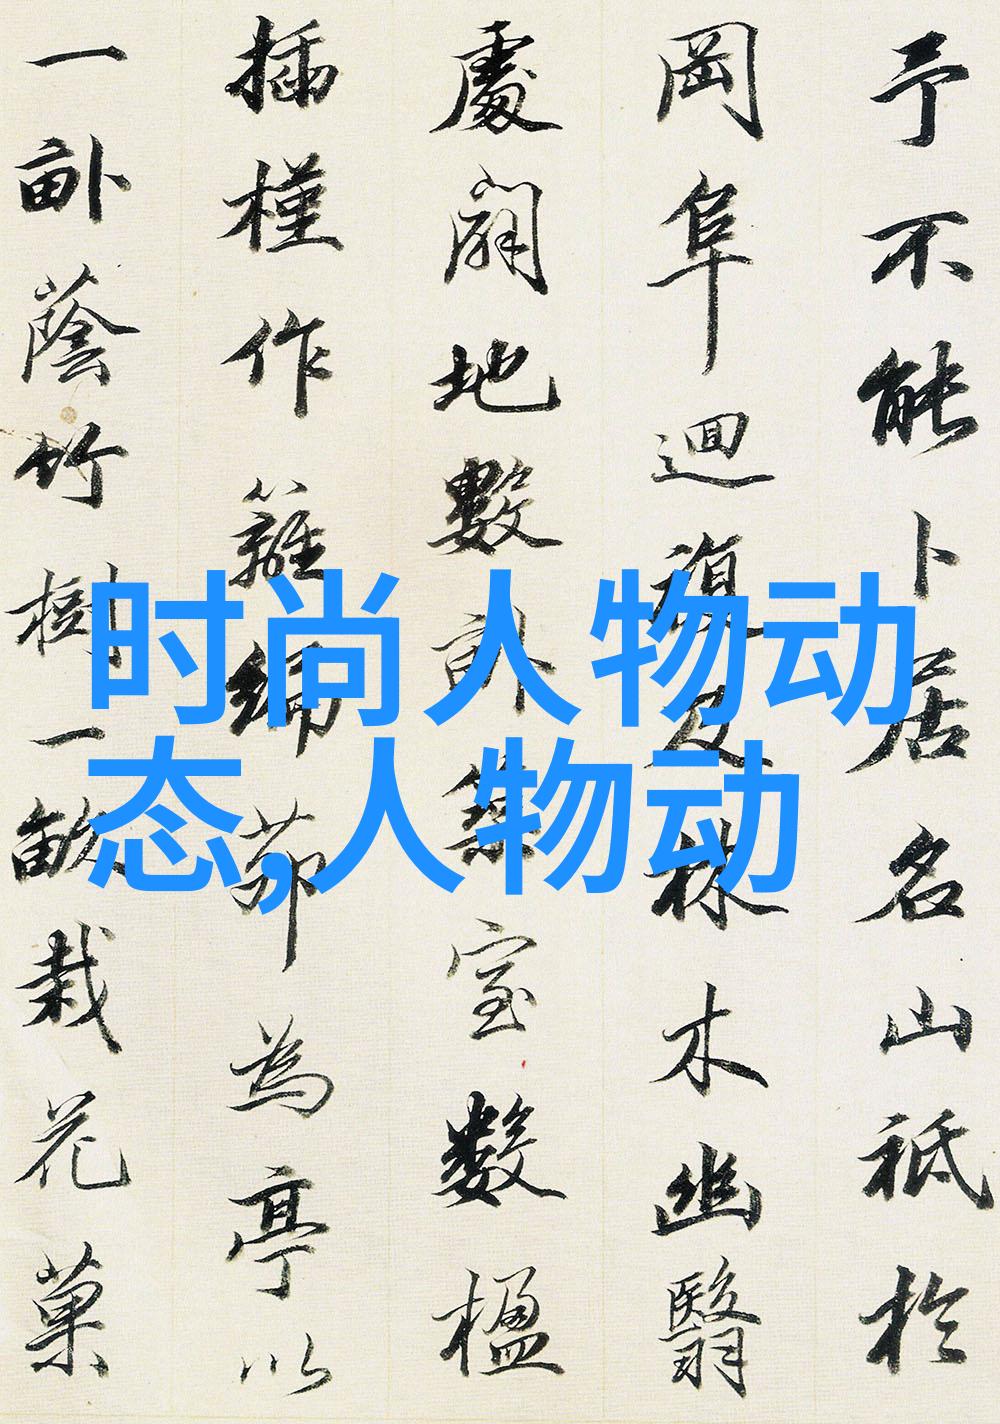 予不能卜居名山祗於
岡阜迴復及林木幽翳
處闢地數畝築室數楹
插槿作籬編茆為亭以
一畝蔭竹樹一畝栽花菓
时尚人物动
态,人物动